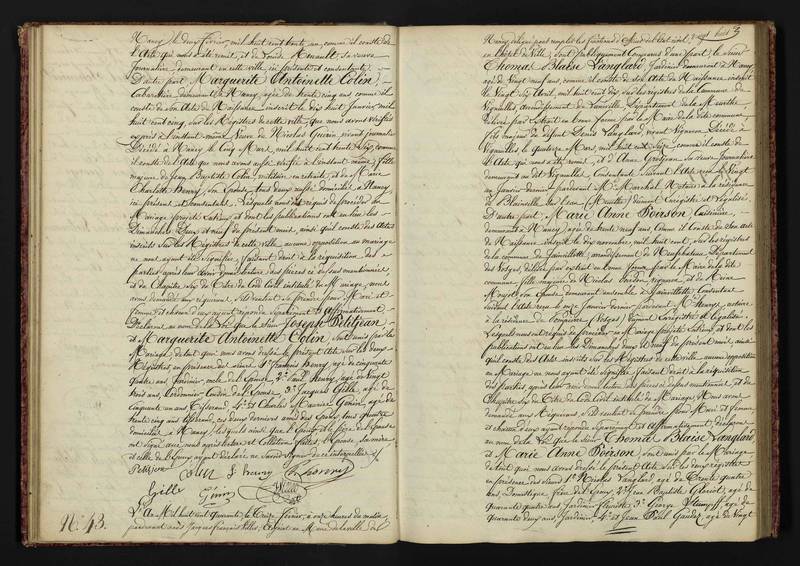 Nancy le deux février, mil huit cent trente un, comme il conste de
l'acte qui nous a été remis, et de
journalière demeurant en cette ville, ici présente et consentante;
D'autre part Marguerite Antoinette Colin,
Cabaretière, demeurant à Nancy, âgée de trente cinq ans comme il
conste de son acte de Naissance inscrit le dix huit Janvier, mil
huit cent cinq, sur les Registres de cette ville que nous avons vérifiés
exprès à l'instant même, Veuve de Nicolas Guérin, vivant journalier
Décédé à Nancy le Cinq Mars, mil huit cent trente six, comme
il conste de l'acte que nous avons aussi vérifié à l'instant même, fille
majeure de Jean Baptiste Colin, militaire en retraite, et de Marie
Charlotte Henry, son épouse, tous deux aussi domiciliés à Nancy
ici présens et consentans. Lesquels nous ont requis de procéder au
Mariage projeté entre eux et dont les publications ont eu lieu les
Dimanches Deux et neuf du présent mois, ainsi qu'il conste des actes
inscrits sur les Registres de cette ville, aucune opposition au mariage
ne nous ayant été signifiée, faisant droit à la réquisition des
parties après leur avoir donné lecture des pièces ci dessus mentionnées,
et du Chapitre six du titre du Code Civil intitulé du Mariage, nous
avons demandé aux requérans, s'ils veulent se prendre pour Mari et
femme, et chacun d'eux ayant répondu séparément et affirmativement,
Déclarons au nom de la loi que le sieur Joseph Petitjean
et Marguerite Antoinette Colin, sont unis par le
Mariage, de tout quoi nous avons dressé le présent acte sur les deux
Registres en présence des sieurs 1° François Henry, âgé de cinquante
quatre ans, Jardinier, oncle de l'Epouse, 2° Paul Henry, âgé de Vingt
trois ans, Cordonnier, Cousin de l'Epouse, 3° Jacques Gille, âgé de
Cinquante un ans, Tisserand, 4° et Charles Maurice Génin, âgé de
trente cinq ans, Tisserand, ces deux derniers amis des Epoux, tous quatre
domiciliés à Nancy, lesquels ainsi que l'Epoux et le père de l'Epouse
ont signé avec nous après lecture et Collation faites, l'Epouse, sa mère
et celle de l'Epoux ayant déclaré ne savoir signer de ce interpellées
Petitjean f henry
Gille Génin
N° 43.
L'An Mil huit cent quarante, le Treize février, à onze heures du matin
pardevant nous Jacques François Adjoint au Maire de la ville de
Nancy, délégué pour remplir les fonctions d'officier de l'état civil,
en l'hôtel de Ville, sont publiquement Comparus d'une part, le sieur
Thomas Blaise Vanglard Jardinier, demeurant à Nancy
âgé de Vingt neuf ans, comme il conste de son acte de Naissance inscrit
le Vingt six Avril, mil huit cent dix, sur les registres de la Commune de
Vigneulles, arrondissement de Lunéville, Département de la Meurthe,
délivré par Extrait en bonne forme par le Maire de la dite commune,
fils majeur de défunt Louis Vanglard, vivant Vigneron, Décédé à
Vigneulles le quatorze Mars, mil huit cent comme il conste de
l'acte qui nous a été remis, et d'Anne sa veuve, Journalière
demeurant au dit Vigneulles, Consentante suivant l'acte reçu le Vingt
un Janvier dernier pardevant Mc Marchal Notaire à la résidence
de Blainville sur l'eau (Meurthe) dûment Enregistré et Légalisé.
D'autre part, Marie Anne Poirson, Cuisinière,
demeurant à Nancy, âgée de trente neuf ans comme il Conste de son acte
de Naissance inscrit le dix novembre, mil huit cent, sur les registres
de la commune de Jainvillotte, arrondissement de Neufchâteau, Département
des Vosges, délivré par extrait en bonne forme par le Maire de la dite
commune, fille majeure de Nicolas Poirson, vigneron, et de Marie
son épouse, demeurant ensemble à Jainvillotte, Consentans
suivant l'acte reçu le onze Janvier dernier pardevant Mc notaire
à la résidence de Pompierre (Vosges) Dûment Enregistré et légalisé.
Lesquels nous ont requis de procéder au Mariage projeté entre eux et dont les
publications ont eu lieu les Dimanches deux et neuf du présent mois, ainsi
qu'il conste des actes inscrits sur les Registres de cette ville, aucune opposition
au Mariage ne nous ayant été signifiée, faisant droit à la réquisition
des parties, après leur avoir donné lecture des pièces ci dessus mentionnées, et du
Chapitre six du Titre du Code Civil intitulé du Mariage, Nous avons
demandé aux Requérans, s'ils veulent se prendre pour Mari et femme
et chacun d'eux ayant répondu séparément et affirmativement, déclarons
au nom de la Loi que le sieur Thomas Blaise Vanglard
et Marie Anne Poirson, sont unis par le Mariage
de tout quoi nous avons dressé le présent Acte sur les deux registres
en présence des sieurs 1° Nicolas Vanglard, âgé de Trente quatre
ans, Domestique, frère de l'Epoux, 2° Jean Baptiste âgé de
Quarante quatre ans, Jardinier fleuriste, 3° George âgé de
Quarante deux ans, Jardinier, 4° et Jean Paul Gaudez, âgé de Vingt